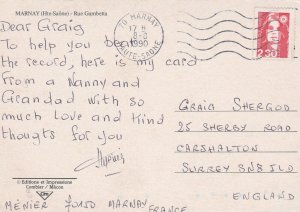 MARNAY (Hte-Saône) - Rue Gambetta
Dear Graig
To help you beat
the record, here is my card
From a Nanny and
Grandad with so
much Love and kind
thougts for you
70 MARNAY
17 H
8-3
1990
HAUTE-SAÔNE
2,30
GRAIG SHERGOD
25 SHERBY ROAD
CARSHALTON
SURREY SN5 1LD
ENGLAND
© Editions et Impressions
Combier / Mâcon
MÉNIER 70150 MARNAY
FRANCE